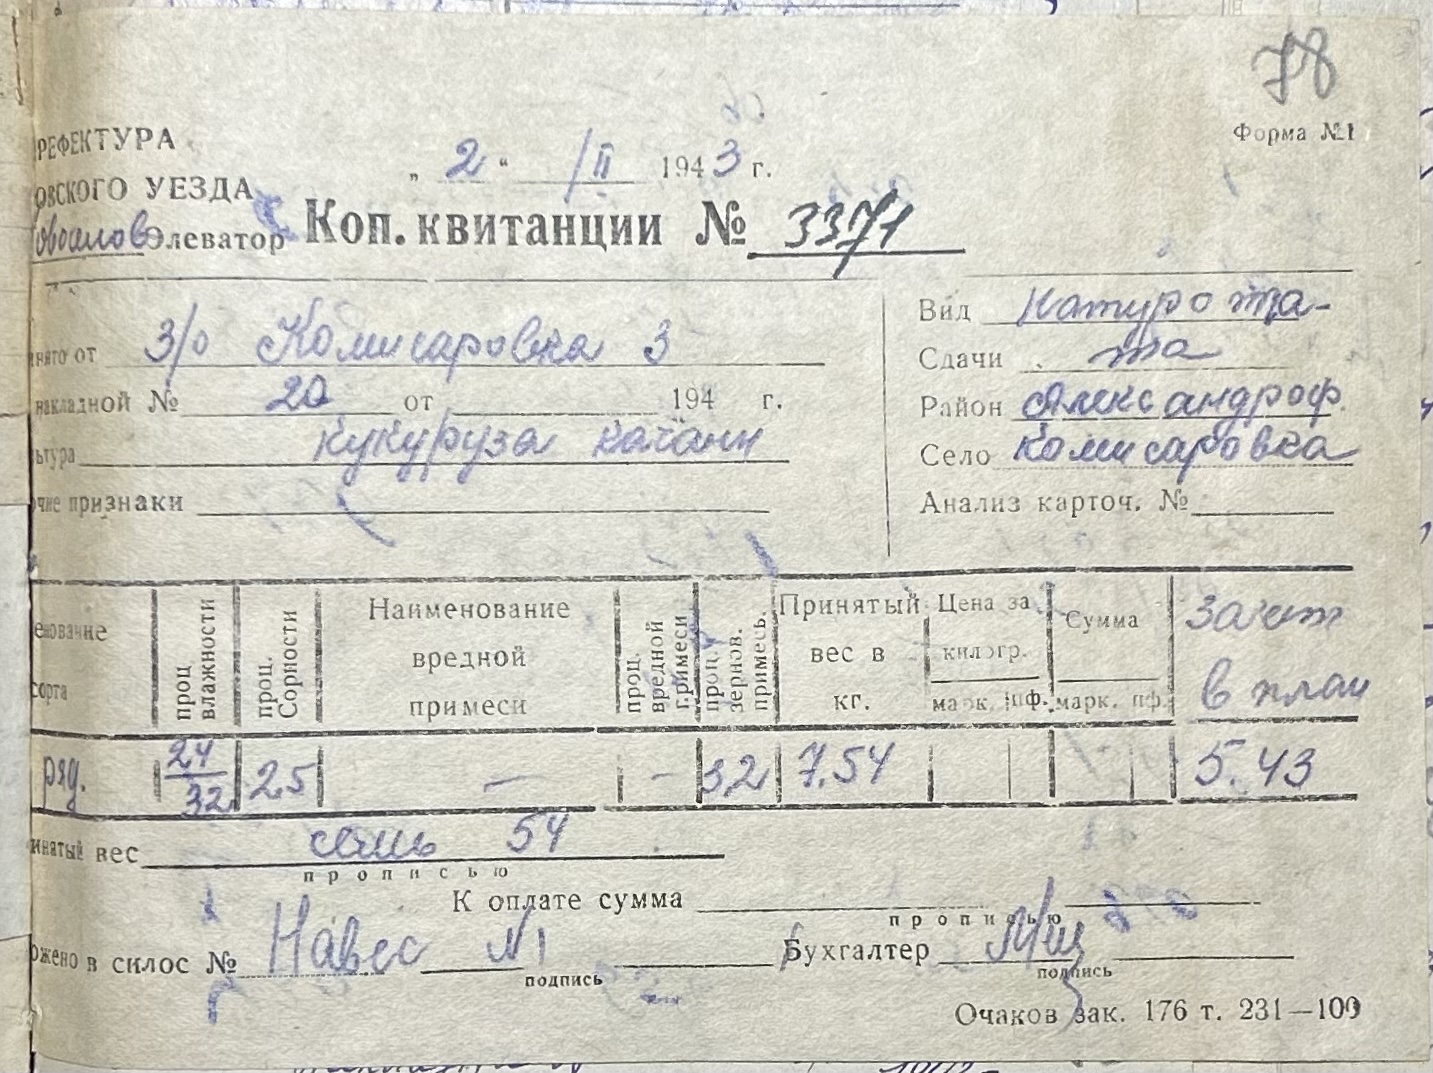 78
Форма №1
РЕФЕКТУРА
ОВСКОГО УЕЗДА
Элеватор
„ 2 “ /II 1943 г.
Коп. квитанции № 3371
нято от З/о Комисаровка 3
накладной № 20 от 194 г.
ьтура кукуруза качани
очие признаки
Вид Натуропла-
Сдачи та
Район Александроф.
Село Комисаровка
Анализ карточ. №
енование сорта
проц влажности
проц. Сорности
Наименование вредной примеси
проц. вредной примеси
проц. зернов. примесь.
Принятый вес в кг.
Цена за килогр.
марк. пф.
Сумма
марк. пф.
Зачет в план
ряд. 24/32 2.5 — - 32 7,54 5.43
инятый вес семь 54
прописью
К оплате сумма
прописью
ожено в силос № Навес №1
подпись
Бухгалтер
подпись
Очаков зак. 176 т. 231—100